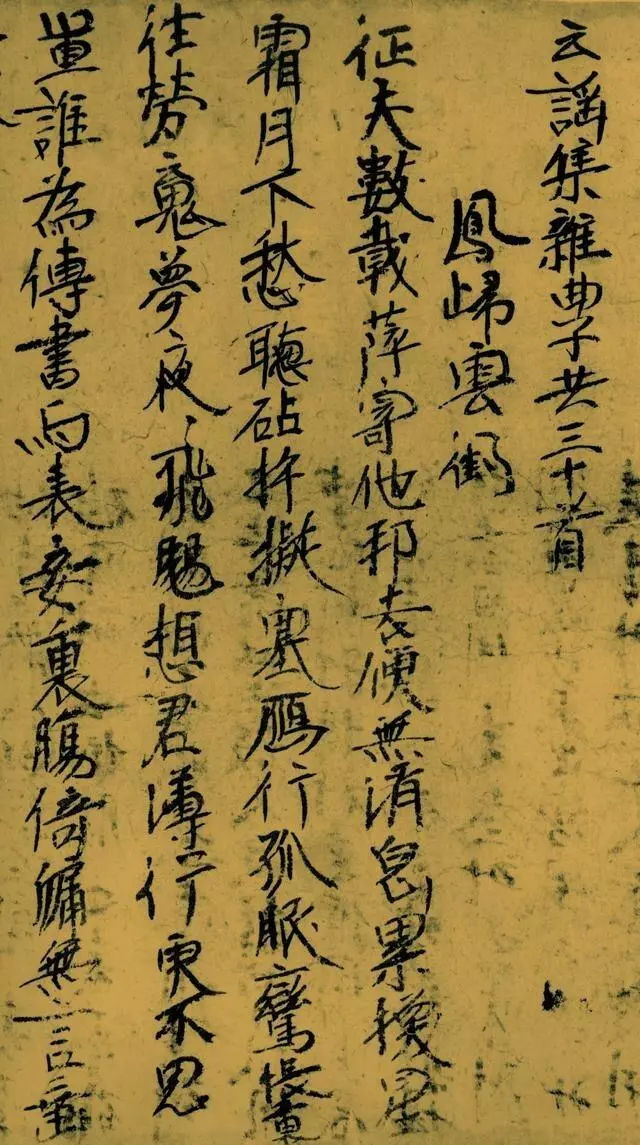 云謠集雜曲子共三十首
鳳歸雲
征夫數載萍寄他邦去便無消息累換星
霜月下愁聽砧杵擬塞鴈行孤眠鸞帳裏
往勞魂夢夜〻飛颺想君薄行更不思
量誰為傳書与表妾裏腸倚牖無言垂